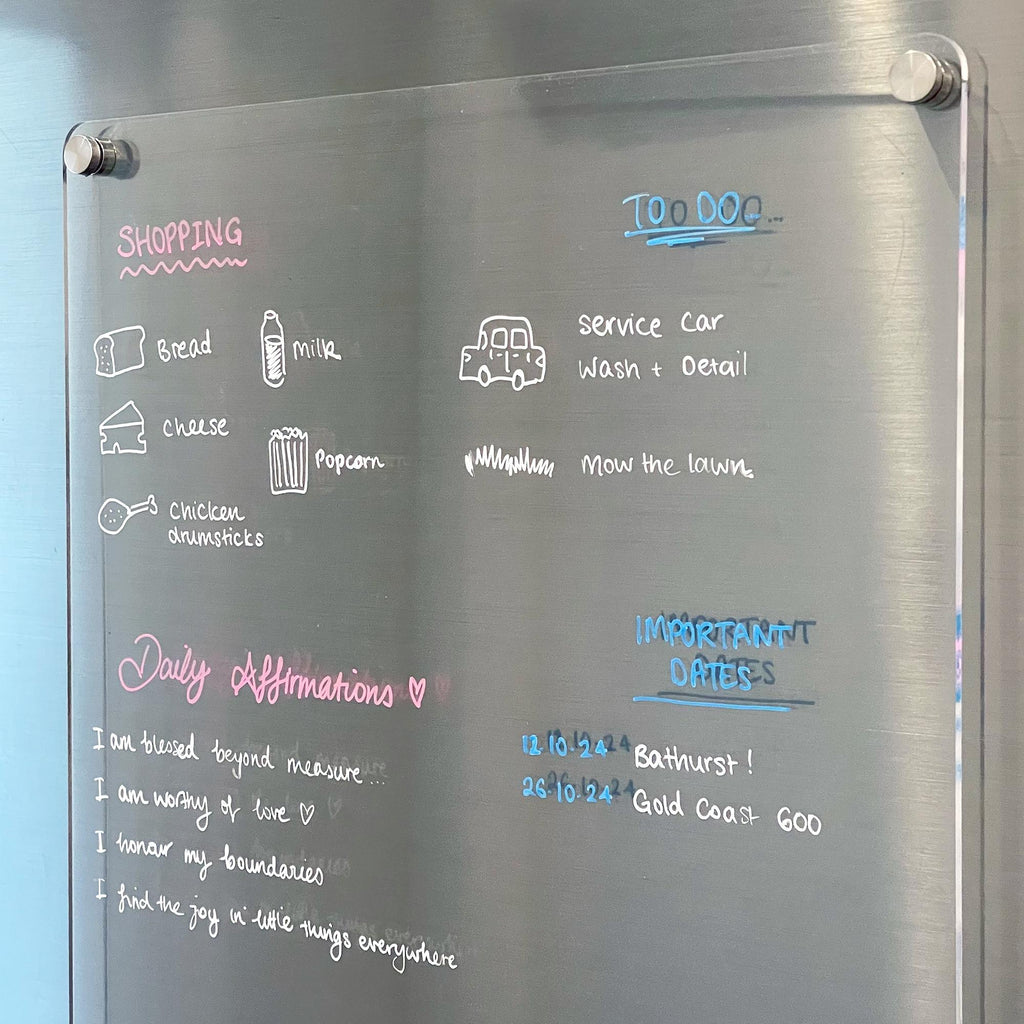 SHOPPING
Bread
Milk
Cheese
Popcorn
Chicken
drumsticks
TO DO...
Service Car
Wash + Detail
Mow the lawn
Daily Affirmations ♡
I am blessed beyond measure...
I am worthy of love ♡
I honour my boundaries
I find the joy in little things everywhere
IMPORTANT
DATES
12.10.24 Bathurst!
26.10.24 Gold Coast 600